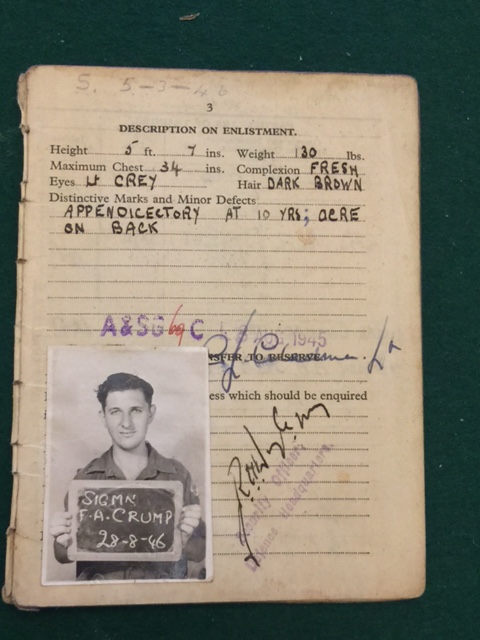 S. 5-3-46
3
DESCRIPTION ON ENLISTMENT.
Height 5 ft. 7 ins. Weight 130 lbs.
Maximum Chest 34 ins. Complexion FRESH
Eyes Lt GREY Hair DARK BROWN
Distinctive Marks and Minor Defects
APPENDICECTORY AT 10 YRS; ACRE
ON BACK
A&SG C 1945
NSFER TO RESERVE
ess which should be enquired
Security Officer
Headquarters.
SIGMN
F.A. CRUMP
28-8-46